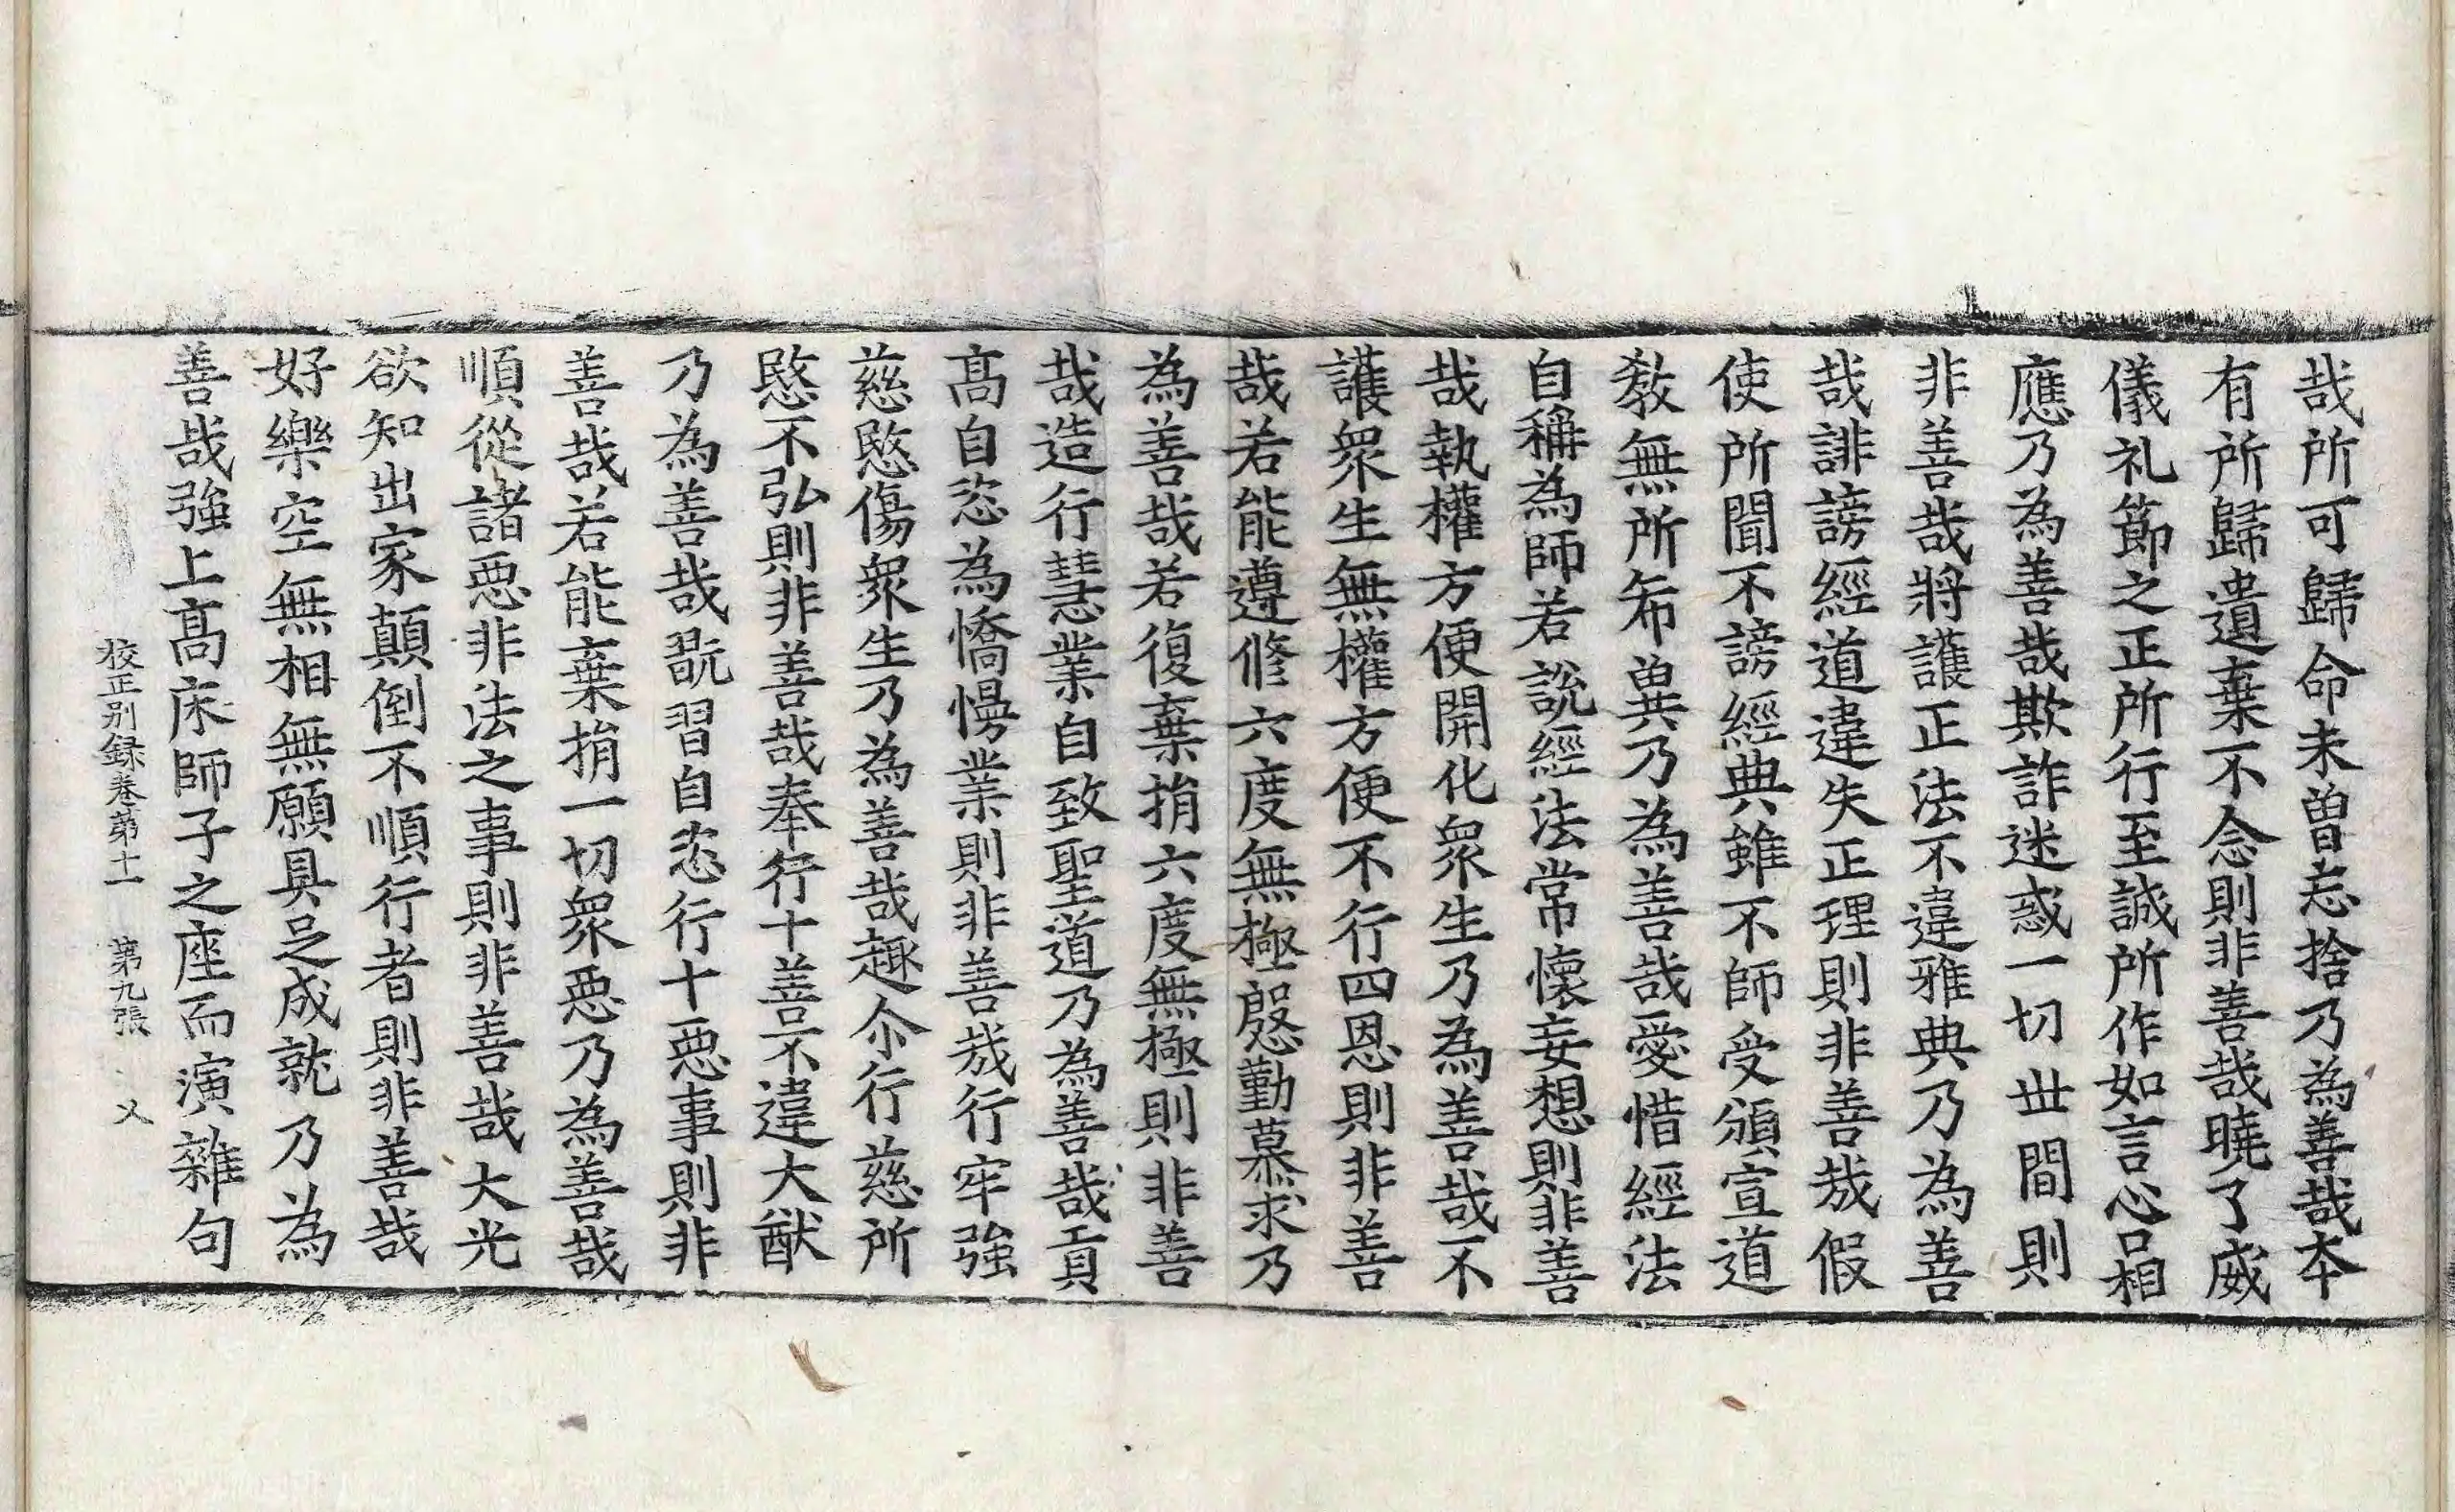 哉所可歸命未曽忘捨乃為善哉本
有所歸遺棄不念則非善哉曉了威
儀礼節之正所行至誠所作如言心口相
應乃為善哉欺詐迷惑一切世間則
非善哉將護正法不違雅典乃為善
哉誹謗經道違失正理則非善哉假
使所聞不謗經典雖不師受頒宣道
教無所希兾乃為善哉愛惜經法
自稱為師若說經法常懷妄想則非善
哉執權方便開化衆生乃為善哉不
護衆生無權方便不行四恩則非善
哉若能遵修六度無極慇勤慕求乃
為善哉若復棄捐六度無極則非善
哉造行慧業自致聖道乃為善哉貢
髙自恣為憍慢業則非善哉行牢強
慈愍傷衆生乃為善哉趣尒行慈所
愍不弘則非善哉奉行十善不違大猷
乃為善哉翫習自恣行十惡事則非
善哉若能棄捐一切衆惡乃為善哉
順從諸惡非法之事則非善哉大光
欲知出家顛倒不順行者則非善哉
好樂空無相無願具足成就乃為
善哉強上髙床師子之座而演雜句
校正别録卷第十一 第九張 乂